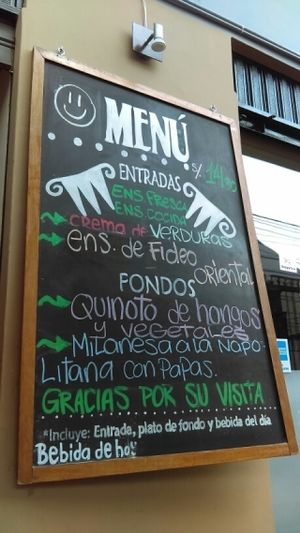 MENÚ
S/. 14.90
ENTRADAS
ENS. FRESCA
ENS. COCIDA
CREMA de VERDURAS
ens. de Fideo
ORIENTAL
FONDOS
QUINOTO de hongos
y vegetales
Milanesa a la Napo-
Litana con PaPas.
GRACIAS POR SU VISITA
*Incluye: Entrada, plato de fondo y bebida del día
Bebida de hoy